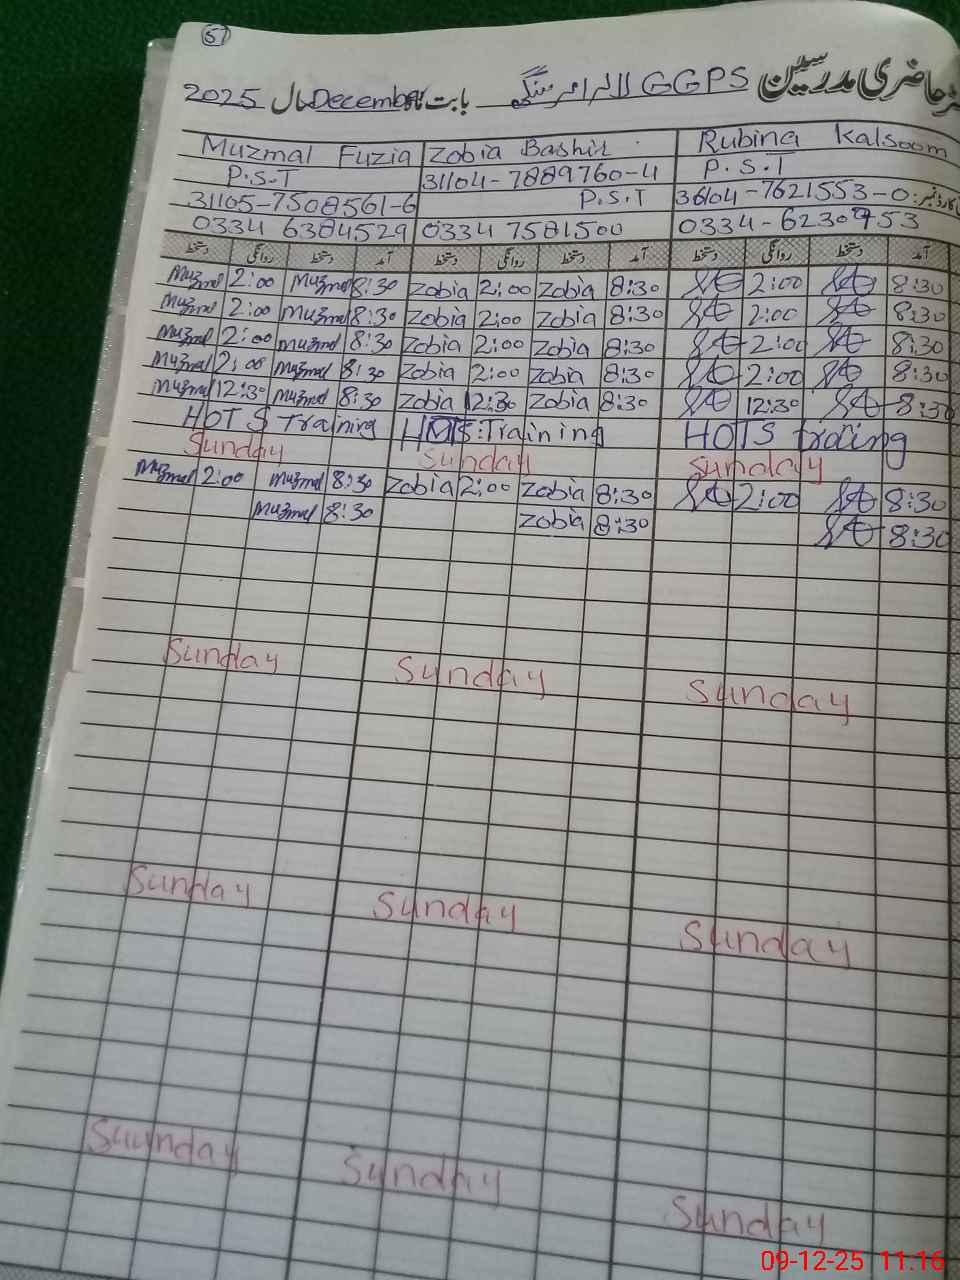 57
حاضری مدرسین GGPS لالہ امر سنگی بابت ماہ December سال 2025
Muzmal Fuzia Zobia Bashir Rubina Kalsoom
P.S.T 31104-7889760-4 P.S.T
31105-7508561-6 P.S.T 36104-7621553-0
0334 6384529 0334 7581500 0334-6230953
دستخط روانگی دستخط آمد دستخط روانگی دستخط آمد دستخط روانگی دستخط آمد
Muzmal 2:00 Muzmal 8:30 Zobia 2:00 Zobia 8:30 2:00 8:30
Muzmal 2:00 Muzmal 8:30 Zobia 2:00 Zobia 8:30 2:00 8:30
Muzmal 2:00 Muzmal 8:30 Zobia 2:00 Zobia 8:30 2:00 8:30
Muzmal 2:00 Muzmal 8:30 Zobia 2:00 Zobia 8:30 2:00 8:30
Muzmal 12:30 Muzmal 8:30 Zobia 12:30 Zobia 8:30 12:30 8:30
HOTS Training HOTS Training HOTS traiing
Sunday Sunday Sunday
Muzmal 2:00 Muzmal 8:30 Zobia 2:00 Zobia 8:30 2:00 8:30
Muzmal 8:30 Zobia 8:30 8:30
Sunday Sunday Sunday
Sunday Sunday Sunday
Suunday Sunday Sunday
09-12-25 11:16